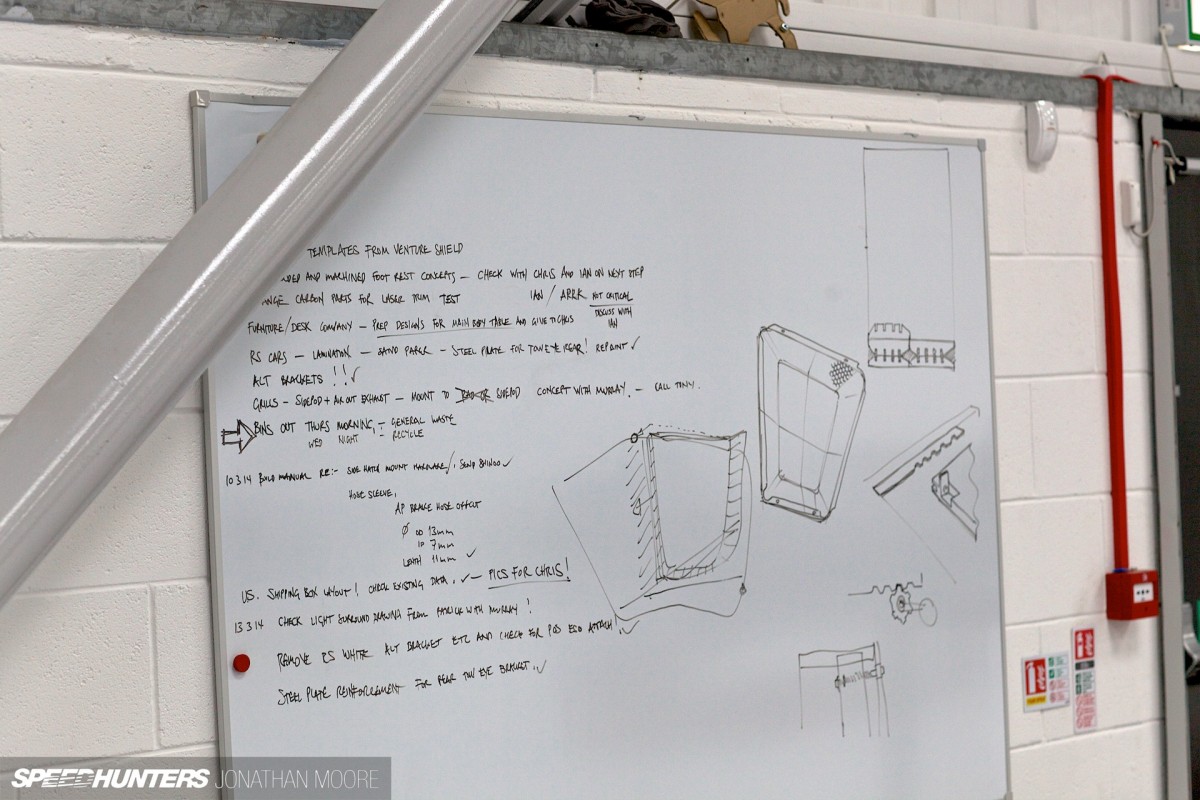 TEMPLATES FROM VENTURE SHIELD
AND MACHINED FOOT REST CONCEPTS – CHECK WITH CHRIS AND IAN ON NEXT STEP
CARBON PARTS FOR LASER TRIM TEST IAN / ARRK NOT CRITICAL
DISCUSS WITH
IAN
FURNITURE/DESK COMPANY – PREP DESIGNS FOR MAIN TABLE AND GIVE TO CHRIS
RS CARS – LAMINATION – – STEEL PLATE FOR TOW EYE REAR! REPRINT ✓
ALT BRACKETS !! ✓
GRILLS – SIDEPOD + AIR OUT EXHAUST – MOUNT TO SIDEPOD CONCEPT WITH MURRAY. – CALL TONY.
BINS OUT THURS MORNING, – GENERAL WASTE
WED NIGHT RECYCLE
10 3 14 BUILD MANUAL RE:- SIDE HATCH MOUNT HARDWARE/. ✓
HOSE SLEEVE,
AP BRAKE HOSE OFFCUT
Ø OD 13mm
ID 7mm
LENGTH 11mm ✓
US. SHIPPING BOX LAYOUT! CHECK EXISTING DATA. ✓ – PICS FOR CHRIS!
13 3 14 CHECK LIGHT SURROUND DRAWING FROM PATRICK WITH MURRAY !
REMOVE RS WHITE ALT BRACKET ETC AND CHECK FOR POS ECO ATTACH! ✓
STEEL PLATE REINFORCEMENT FOR REAR TOW EYE BRACKET. ✓
SPEEDHUNTERS JONATHAN MOORE